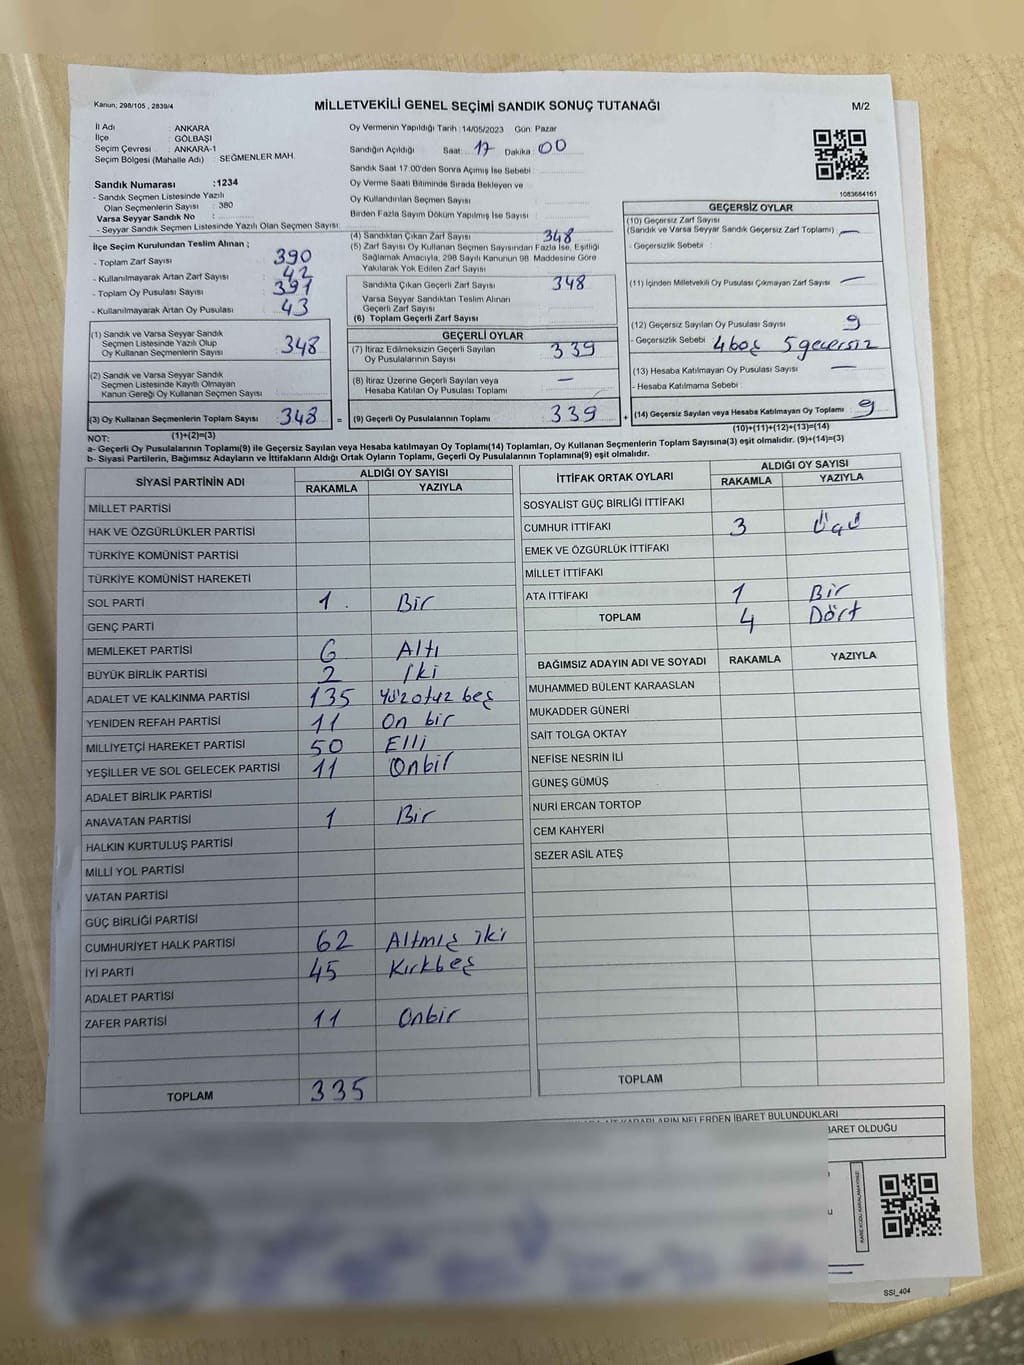 Kanun; 298/105 , 2839/4
MİLLETVEKİLİ GENEL SEÇİMİ SANDIK SONUÇ TUTANAĞI
M/2
İl Adı : ANKARA
İlçe : GÖLBAŞI
Seçim Çevresi : ANKARA-1
Seçim Bölgesi (Mahalle Adı) : SEĞMENLER MAH.
Sandık Numarası :1234
- Sandık Seçmen Listesinde Yazılı
Olan Seçmenlerin Sayısı : 380
Varsa Seyyar Sandık No :
- Seyyar Sandık Seçmen Listesinde Yazılı Olan Seçmen Sayısı:
İlçe Seçim Kurulundan Teslim Alınan ;
- Toplam Zarf Sayısı 390
- Kullanılmayarak Artan Zarf Sayısı 42
- Toplam Oy Pusulası Sayısı 391
- Kullanılmayarak Artan Oy Pusulası 43
(1) Sandık ve Varsa Seyyar Sandık
Seçmen Listesinde Yazılı Olup
Oy Kullanan Seçmenlerin Sayısı 348
(2) Sandık ve Varsa Seyyar Sandık
Seçmen Listesinde Kayıtlı Olmayan
Kanun Gereği Oy Kullanan Seçmen Sayısı
(3) Oy Kullanan Seçmenlerin Toplam Sayısı 348 =
(1)+(2)=(3)
Oy Vermenin Yapıldığı Tarih :14/05/2023 Gün: Pazar
Sandığın Açıldığı Saat: 17 Dakika 00
Sandık Saat 17.00'den Sonra Açılmış İse Sebebi:
Oy Verme Saati Bitiminde Sırada Bekleyen ve
Oy Kullandırılan Seçmen Sayısı
Birden Fazla Sayım Döküm Yapılmış İse Sayısı
(4) Sandıktan Çıkan Zarf Sayısı 348
(5) Zarf Sayısı Oy Kullanan Seçmen Sayısından Fazla İse, Eşitliği
Sağlamak Amacıyla, 298 Sayılı Kanunun 98. Maddesine Göre
Yakılarak Yok Edilen Zarf Sayısı
Sandıkta Çıkan Geçerli Zarf Sayısı 348
Varsa Seyyar Sandıktan Teslim Alınan
Geçerli Zarf Sayısı
(6) Toplam Geçerli Zarf Sayısı
GEÇERLİ OYLAR
(7) İtiraz Edilmeksizin Geçerli Sayılan
Oy Pusulalarının Sayısı 339
(8) İtiraz Üzerine Geçerli Sayılan veya
Hesaba Katılan Oy Pusulası Toplamı —
(9) Geçerli Oy Pusulalarının Toplamı 339 +
1083664161
GEÇERSİZ OYLAR
(10) Geçersiz Zarf Sayısı
(Sandık ve Varsa Seyyar Sandık Geçersiz Zarf Toplamı) —
- Geçersizlik Sebebi :
(11) İçinden Milletvekili Oy Pusulası Çıkmayan Zarf Sayısı —
(12) Geçersiz Sayılan Oy Pusulası Sayısı 9
- Geçersizlik Sebebi 4 boş 5 geçersiz
(13) Hesaba Katılmayan Oy Pusulası Sayısı —
- Hesaba Katılmama Sebebi :
(14) Geçersiz Sayılan veya Hesaba Katılmayan Oy Toplamı 9
(10)+(11)+(12)+(13)=(14)
NOT:
a- Geçerli Oy Pusulalarının Toplamı(9) ile Geçersiz Sayılan veya Hesaba katılmayan Oy Toplamı(14) Toplamları, Oy Kullanan Seçmenlerin Toplam Sayısına(3) eşit olmalıdır. (9)+(14)=(3)
b- Siyasi Partilerin, Bağımsız Adayların ve İttifakların Aldığı Ortak Oyların Toplamı, Geçerli Oy Pusulalarının Toplamına(9) eşit olmalıdır.
SİYASİ PARTİNİN ADI
ALDIĞI OY SAYISI
RAKAMLA YAZIYLA
MİLLET PARTİSİ
HAK VE ÖZGÜRLÜKLER PARTİSİ
TÜRKİYE KOMÜNİST PARTİSİ
TÜRKİYE KOMÜNİST HAREKETİ
SOL PARTİ 1 . Bir
GENÇ PARTİ
MEMLEKET PARTİSİ 6 Altı
BÜYÜK BİRLİK PARTİSİ 2 İki
ADALET VE KALKINMA PARTİSİ 135 Yüzotuz beş
YENİDEN REFAH PARTİSİ 11 On bir
MİLLİYETÇİ HAREKET PARTİSİ 50 Elli
YEŞİLLER VE SOL GELECEK PARTİSİ 11 Onbir
ADALET BİRLİK PARTİSİ
ANAVATAN PARTİSİ 1 Bir
HALKIN KURTULUŞ PARTİSİ
MİLLİ YOL PARTİSİ
VATAN PARTİSİ
GÜÇ BİRLİĞİ PARTİSİ
CUMHURİYET HALK PARTİSİ 62 Altmış iki
İYİ PARTİ 45 Kırkbeş
ADALET PARTİSİ
ZAFER PARTİSİ 11 Onbir
TOPLAM 335
İTTİFAK ORTAK OYLARI
ALDIĞI OY SAYISI
RAKAMLA YAZIYLA
SOSYALİST GÜÇ BİRLİĞİ İTTİFAKI
CUMHUR İTTİFAKI 3 Üçü
EMEK VE ÖZGÜRLÜK İTTİFAKI
MİLLET İTTİFAKI
ATA İTTİFAKI 1 Bir
TOPLAM 4 Dört
BAĞIMSIZ ADAYIN ADI VE SOYADI RAKAMLA YAZIYLA
MUHAMMED BÜLENT KARAASLAN
MUKADDER GÜNERİ
SAİT TOLGA OKTAY
NEFİSE NESRİN İLİ
GÜNEŞ GÜMÜŞ
NURİ ERCAN TORTOP
CEM KAHYERİ
SEZER ASİL ATEŞ
TOPLAM
KARARLARIN NELERDEN İBARET BULUNDUKLARI
İBARET OLDUĞU
SSI_404